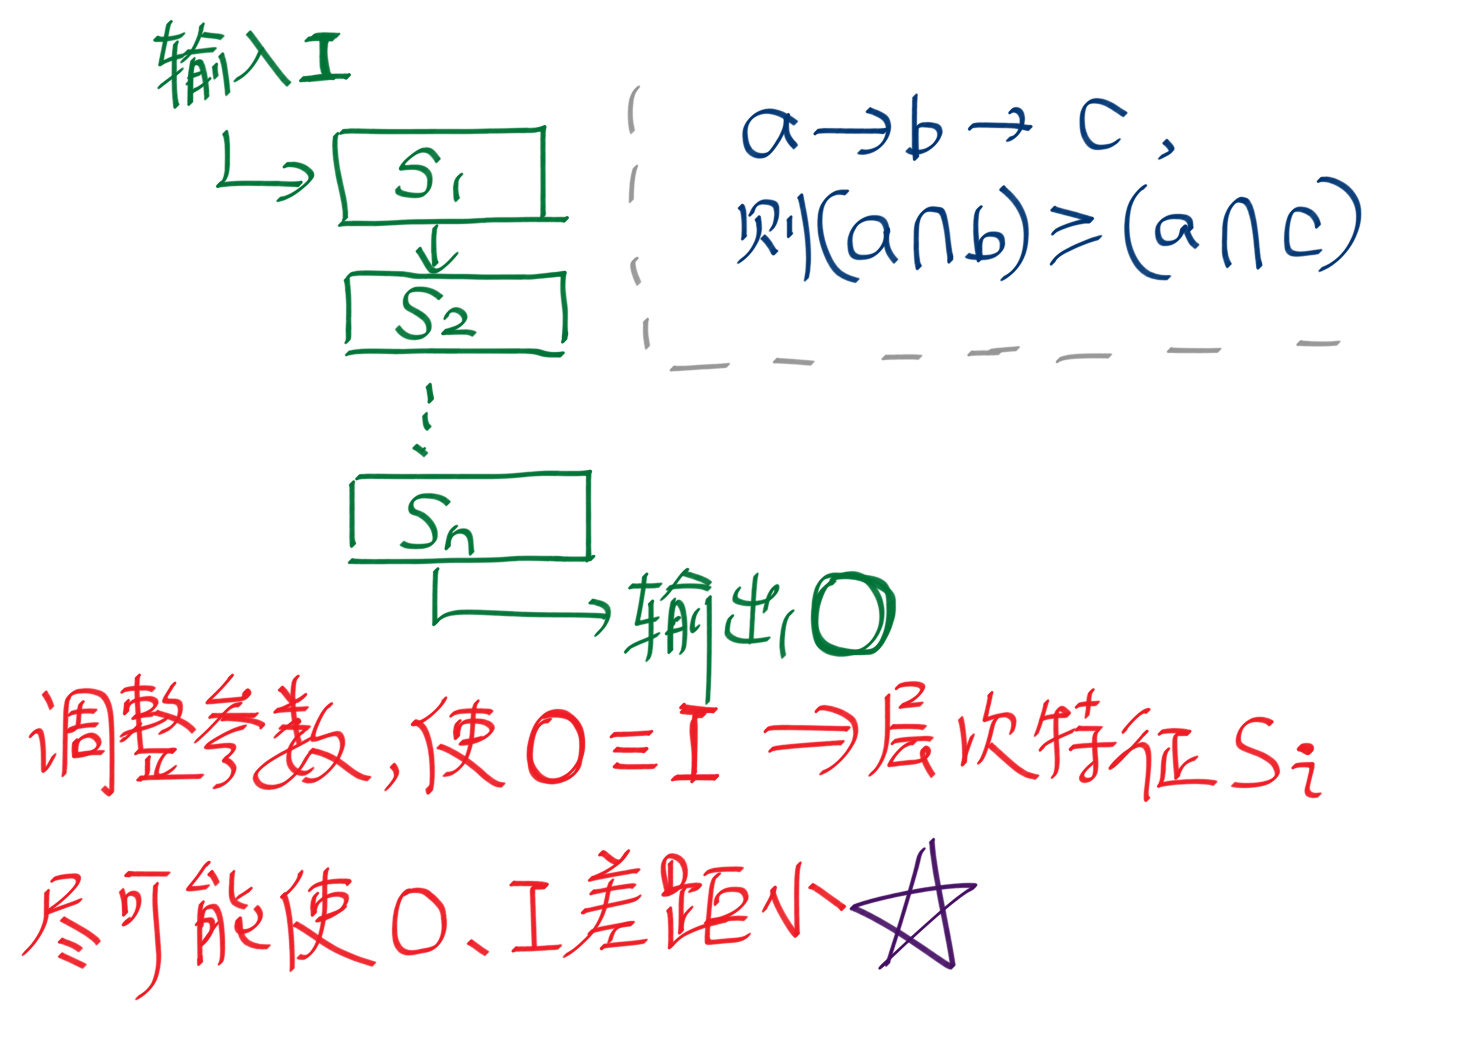 输入I
S1
S2
Sn
输出O
a→b→c,
则(a∩b)≥(a∩c)
调整参数,使O≡I⇒层次特征Si
尽可能使O、I差距小